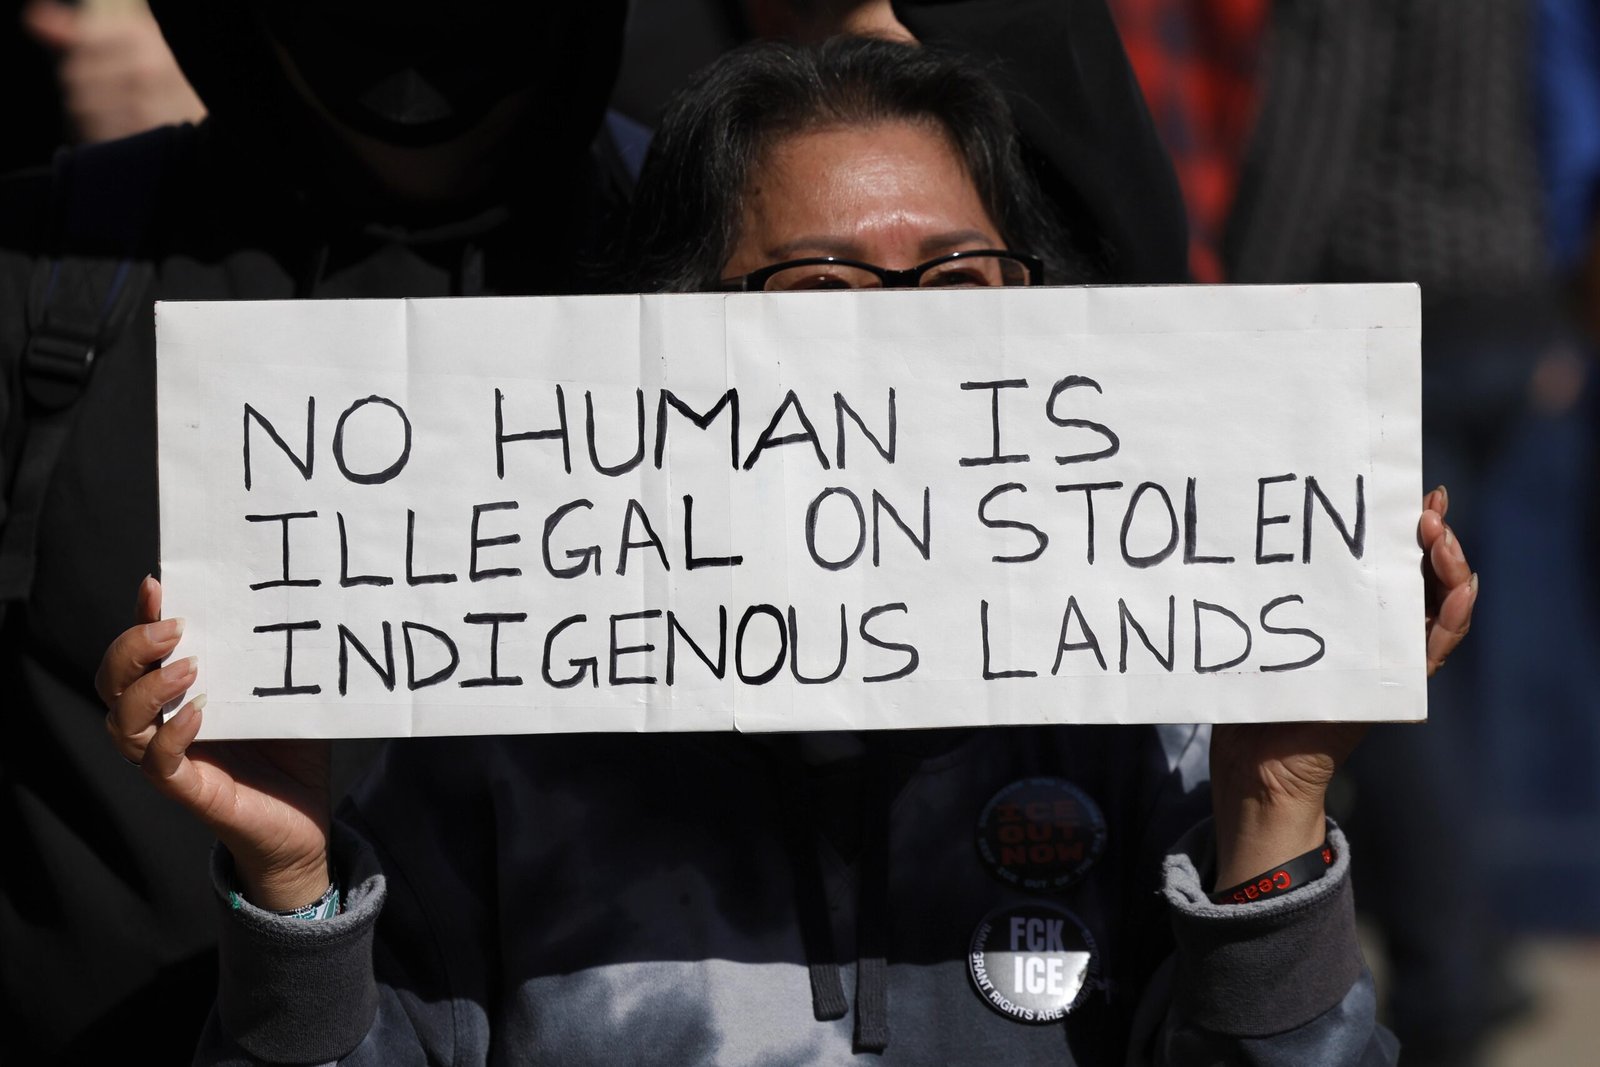 NO HUMAN IS
ILLEGAL ON STOLEN
INDIGENOUS LANDS
ICE
OUT
NOW
ICE OUT OF
FCK
ICE
IMMIGRANT RIGHTS ARE
Ceas